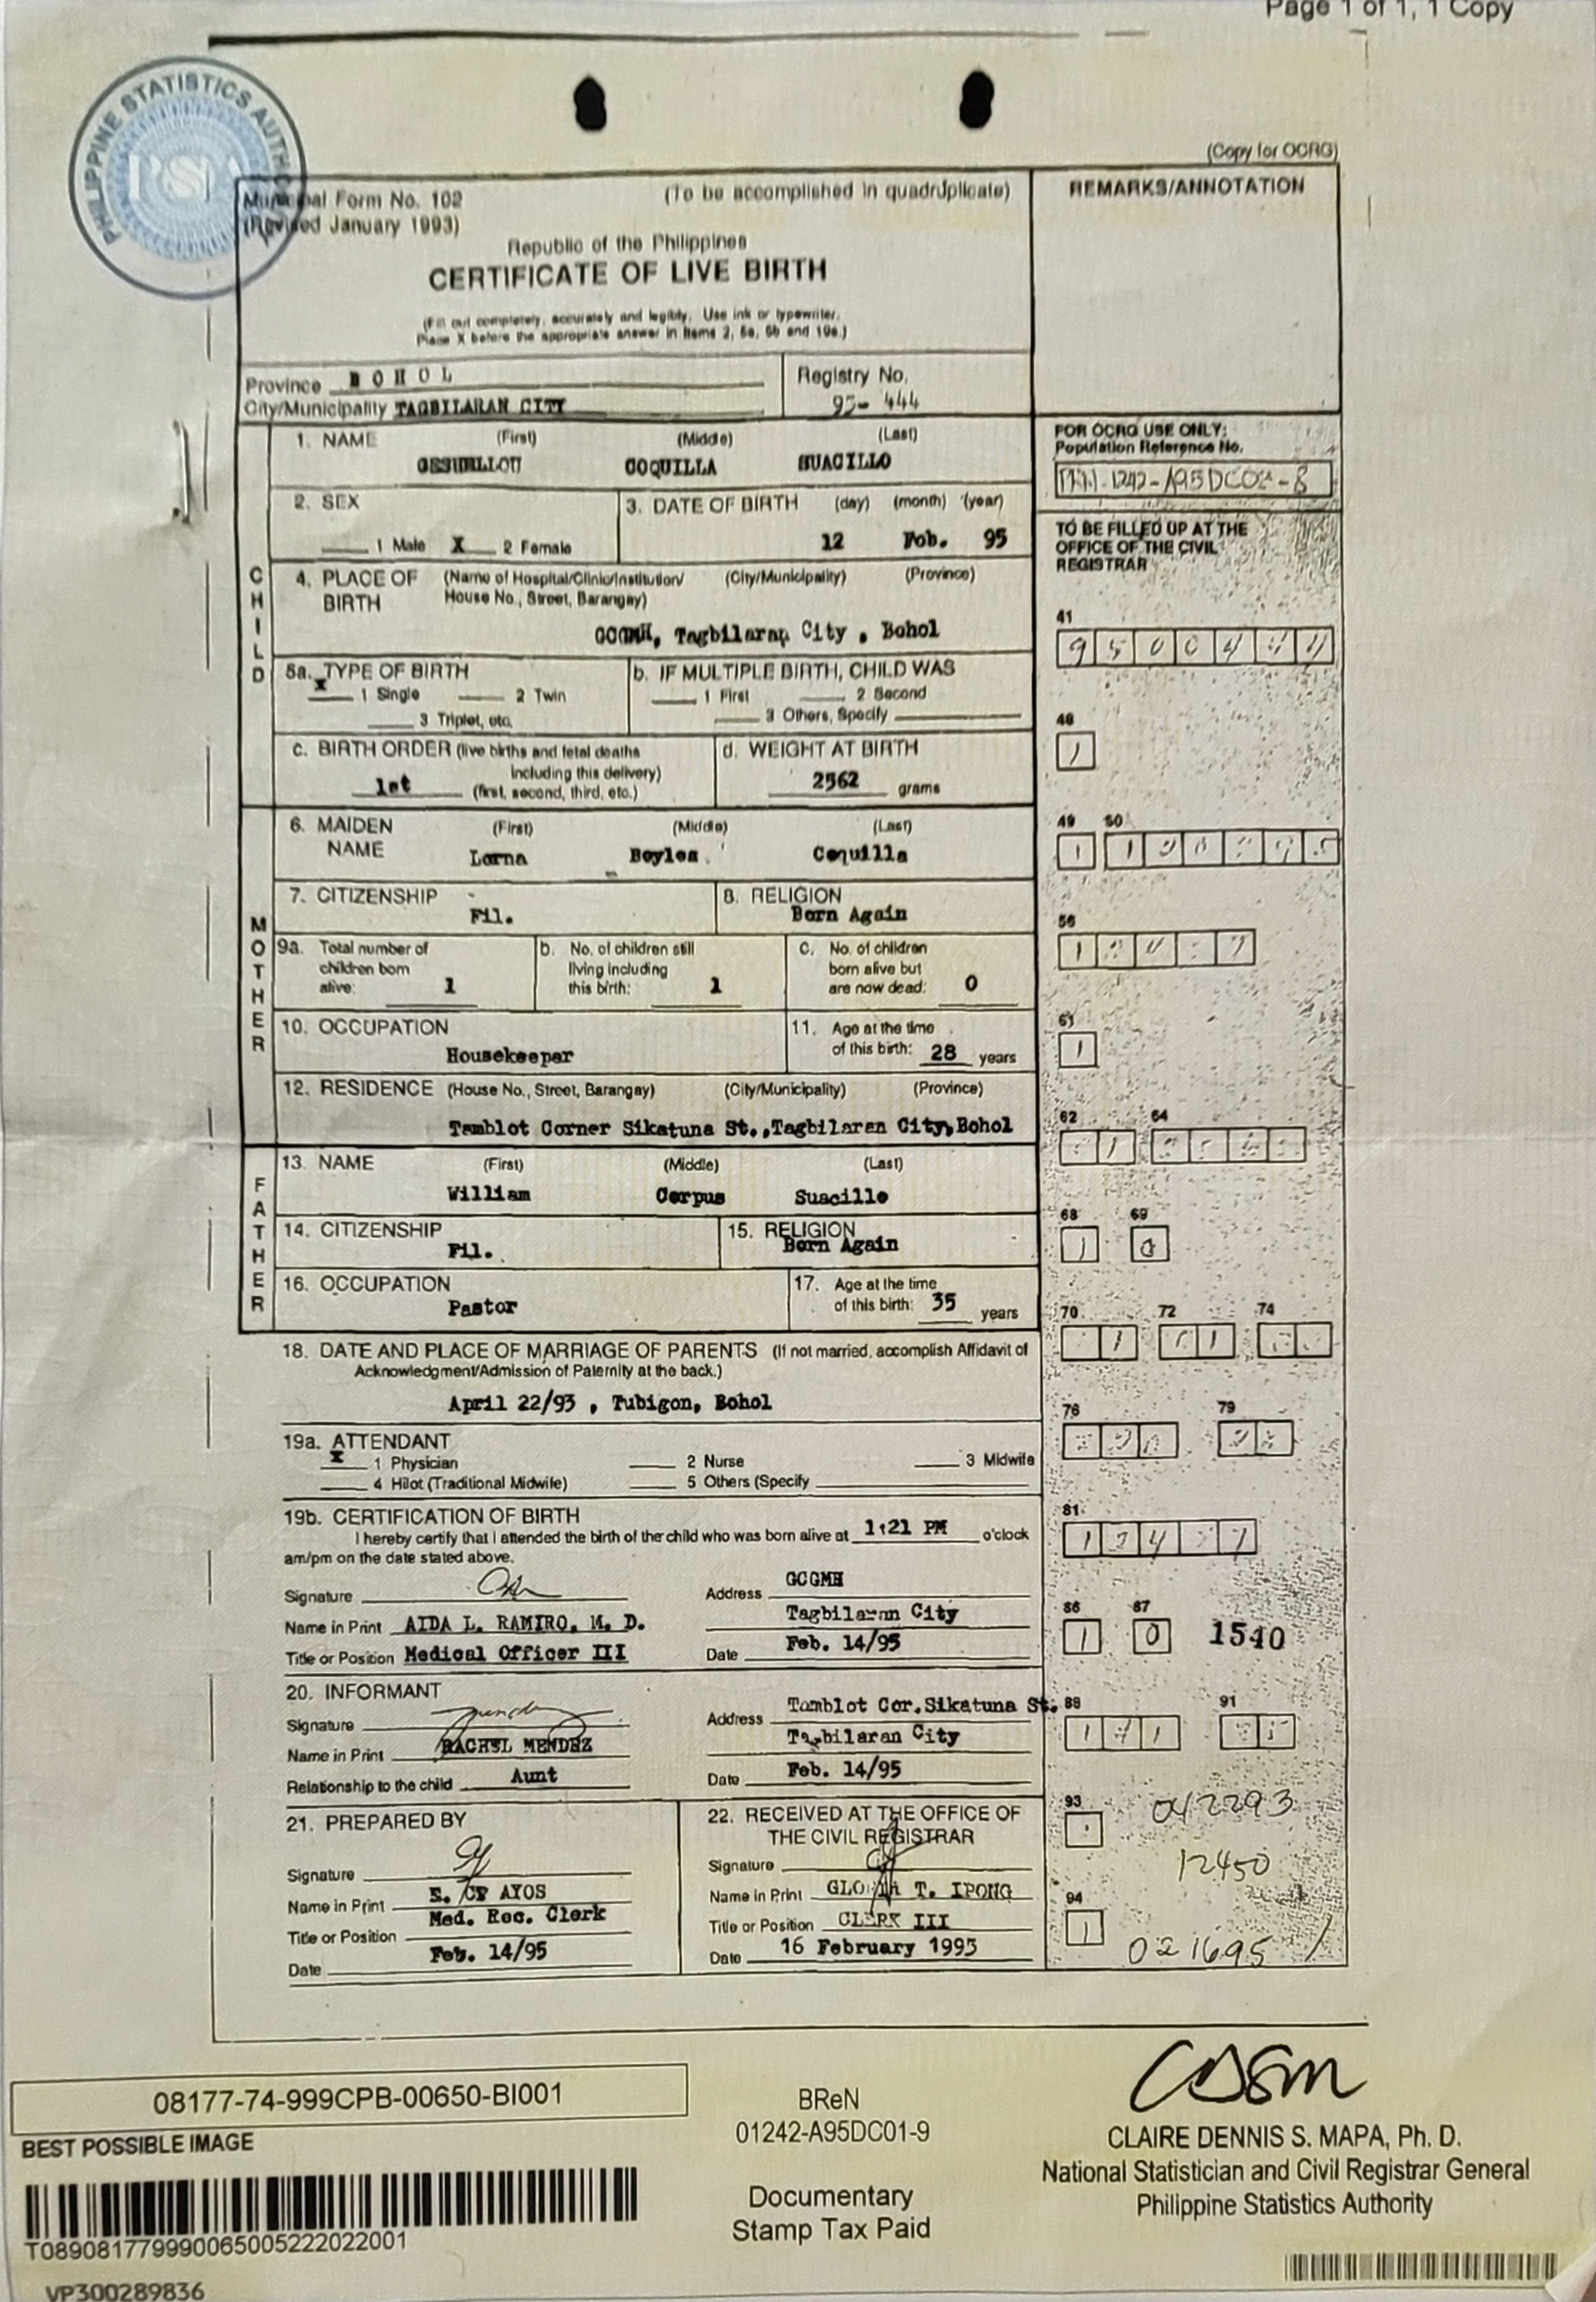 Page 1 of 1, 1 Copy
PHILIPPINE STATISTICS AUTHORITY
PSA
(Copy for OCRG)
Municipal Form No. 102
(Revised January 1993)
(To be accomplished in quadruplicate)
REMARKS/ANNOTATION
Republic of the Philippines
CERTIFICATE OF LIVE BIRTH
(Fill out completely, accurately and legibly. Use ink or typewriter.
Place X before the appropriate answer in Items 2, 5a, 5b and 19a.)
Province BOHOL
City/Municipality TAGBILARAN CITY
Registry No.
95- 444
FOR OCRG USE ONLY:
Population Reference No.
TO BE FILLED UP AT THE
OFFICE OF THE CIVIL
REGISTRAR
CHILD
1. NAME (First) (Middle) (Last)
COQUILLA SUACILLO
2. SEX
1 Male X 2 Female
3. DATE OF BIRTH (day) (month) (year)
12 Feb. 95
4. PLACE OF BIRTH (Name of Hospital/Clinic/Institution/ House No., Street, Barangay) (City/Municipality) (Province)
GCGMH, Tagbilaran City , Bohol
5a. TYPE OF BIRTH
X 1 Single 2 Twin
3 Triplet, etc.
b. IF MULTIPLE BIRTH, CHILD WAS
1 First 2 Second
3 Others, Specify
c. BIRTH ORDER (live births and fetal deaths
including this delivery)
1st (first, second, third, etc.)
d. WEIGHT AT BIRTH
2562 grams
MOTHER
6. MAIDEN NAME (First) (Middle) (Last)
Lorna Boyles Coquilla
7. CITIZENSHIP
Fil.
8. RELIGION
Born Again
9a. Total number of
children born
alive: 1
b. No. of children still
living including
this birth: 1
c. No. of children
born alive but
are now dead: 0
10. OCCUPATION
Housekeeper
11. Age at the time
of this birth: 28 years
12. RESIDENCE (House No., Street, Barangay) (City/Municipality) (Province)
Tamblot Corner Sikatuna St.,Tagbilaran City,Bohol
FATHER
13. NAME (First) (Middle) (Last)
William Corpus Suacillo
14. CITIZENSHIP
Fil.
15. RELIGION
Born Again
16. OCCUPATION
Pastor
17. Age at the time
of this birth: 35 years
18. DATE AND PLACE OF MARRIAGE OF PARENTS (If not married, accomplish Affidavit of
Acknowledgment/Admission of Paternity at the back.)
April 22/93 , Tubigon, Bohol
19a. ATTENDANT
X 1 Physician 2 Nurse 3 Midwife
4 Hilot (Traditional Midwife) 5 Others (Specify
19b. CERTIFICATION OF BIRTH
I hereby certify that I attended the birth of the child who was born alive at 1:21 PM o'clock
am/pm on the date stated above.
Signature
Name in Print AIDA L. RAMIRO, M. D.
Title or Position Medical Officer III
Address GCGMH
Tagbilaran City
Date Feb. 14/95
20. INFORMANT
Signature
Name in Print RACHEL MENDEZ
Relationship to the child Aunt
Address Tamblot Cor.Sikatuna St.
Tagbilaran City
Date Feb. 14/95
21. PREPARED BY
Signature
Name in Print AYOS
Title or Position Med. Rec. Clerk
Date Feb. 14/95
22. RECEIVED AT THE OFFICE OF
THE CIVIL REGISTRAR
Signature
Name in Print GLORIA T. IPONG
Title or Position CLERK III
Date 16 February 1995
41
48
1
49 50
56
61
1
62 64
68 69
1 0
70 72 74
76 79
81
86 87
1 0 1540
88 91
93
042293
12450
94
1
021695
08177-74-999CPB-00650-BI001
BEST POSSIBLE IMAGE
T089081779990065005222022001
VP300289836
BReN
01242-A95DC01-9
Documentary
Stamp Tax Paid
CLAIRE DENNIS S. MAPA, Ph. D.
National Statistician and Civil Registrar General
Philippine Statistics Authority